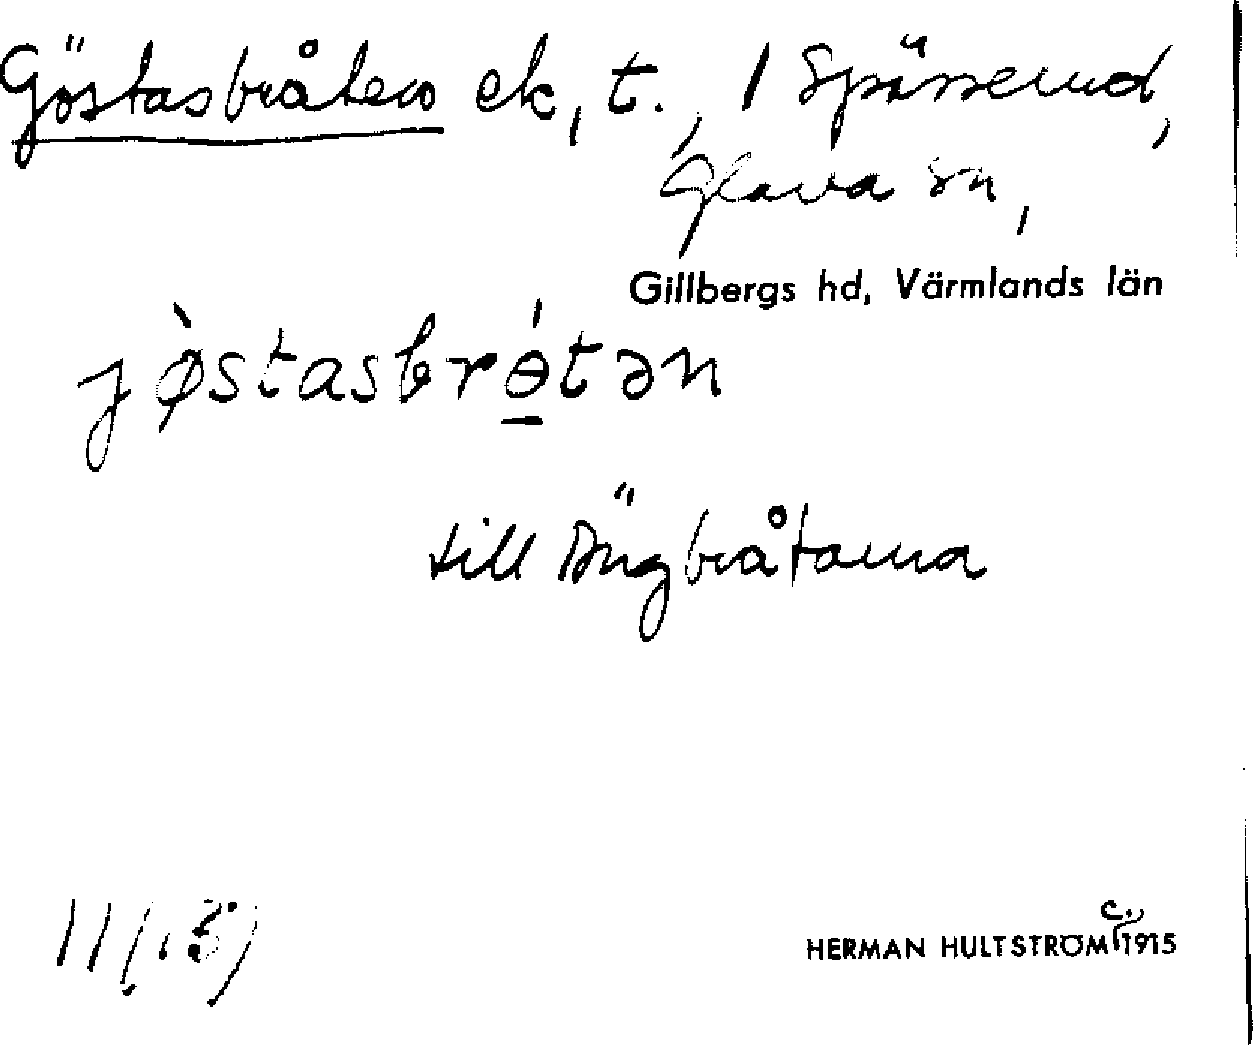 Göstasbråten ek, t., 1 Spässerud,
Glava sn,
Gillbergs hd, Värmlands län
jø̀stasbrɵ́tən
till Ängbråtarna
11(15)
HERMAN HULTSTRÖM c. 1915